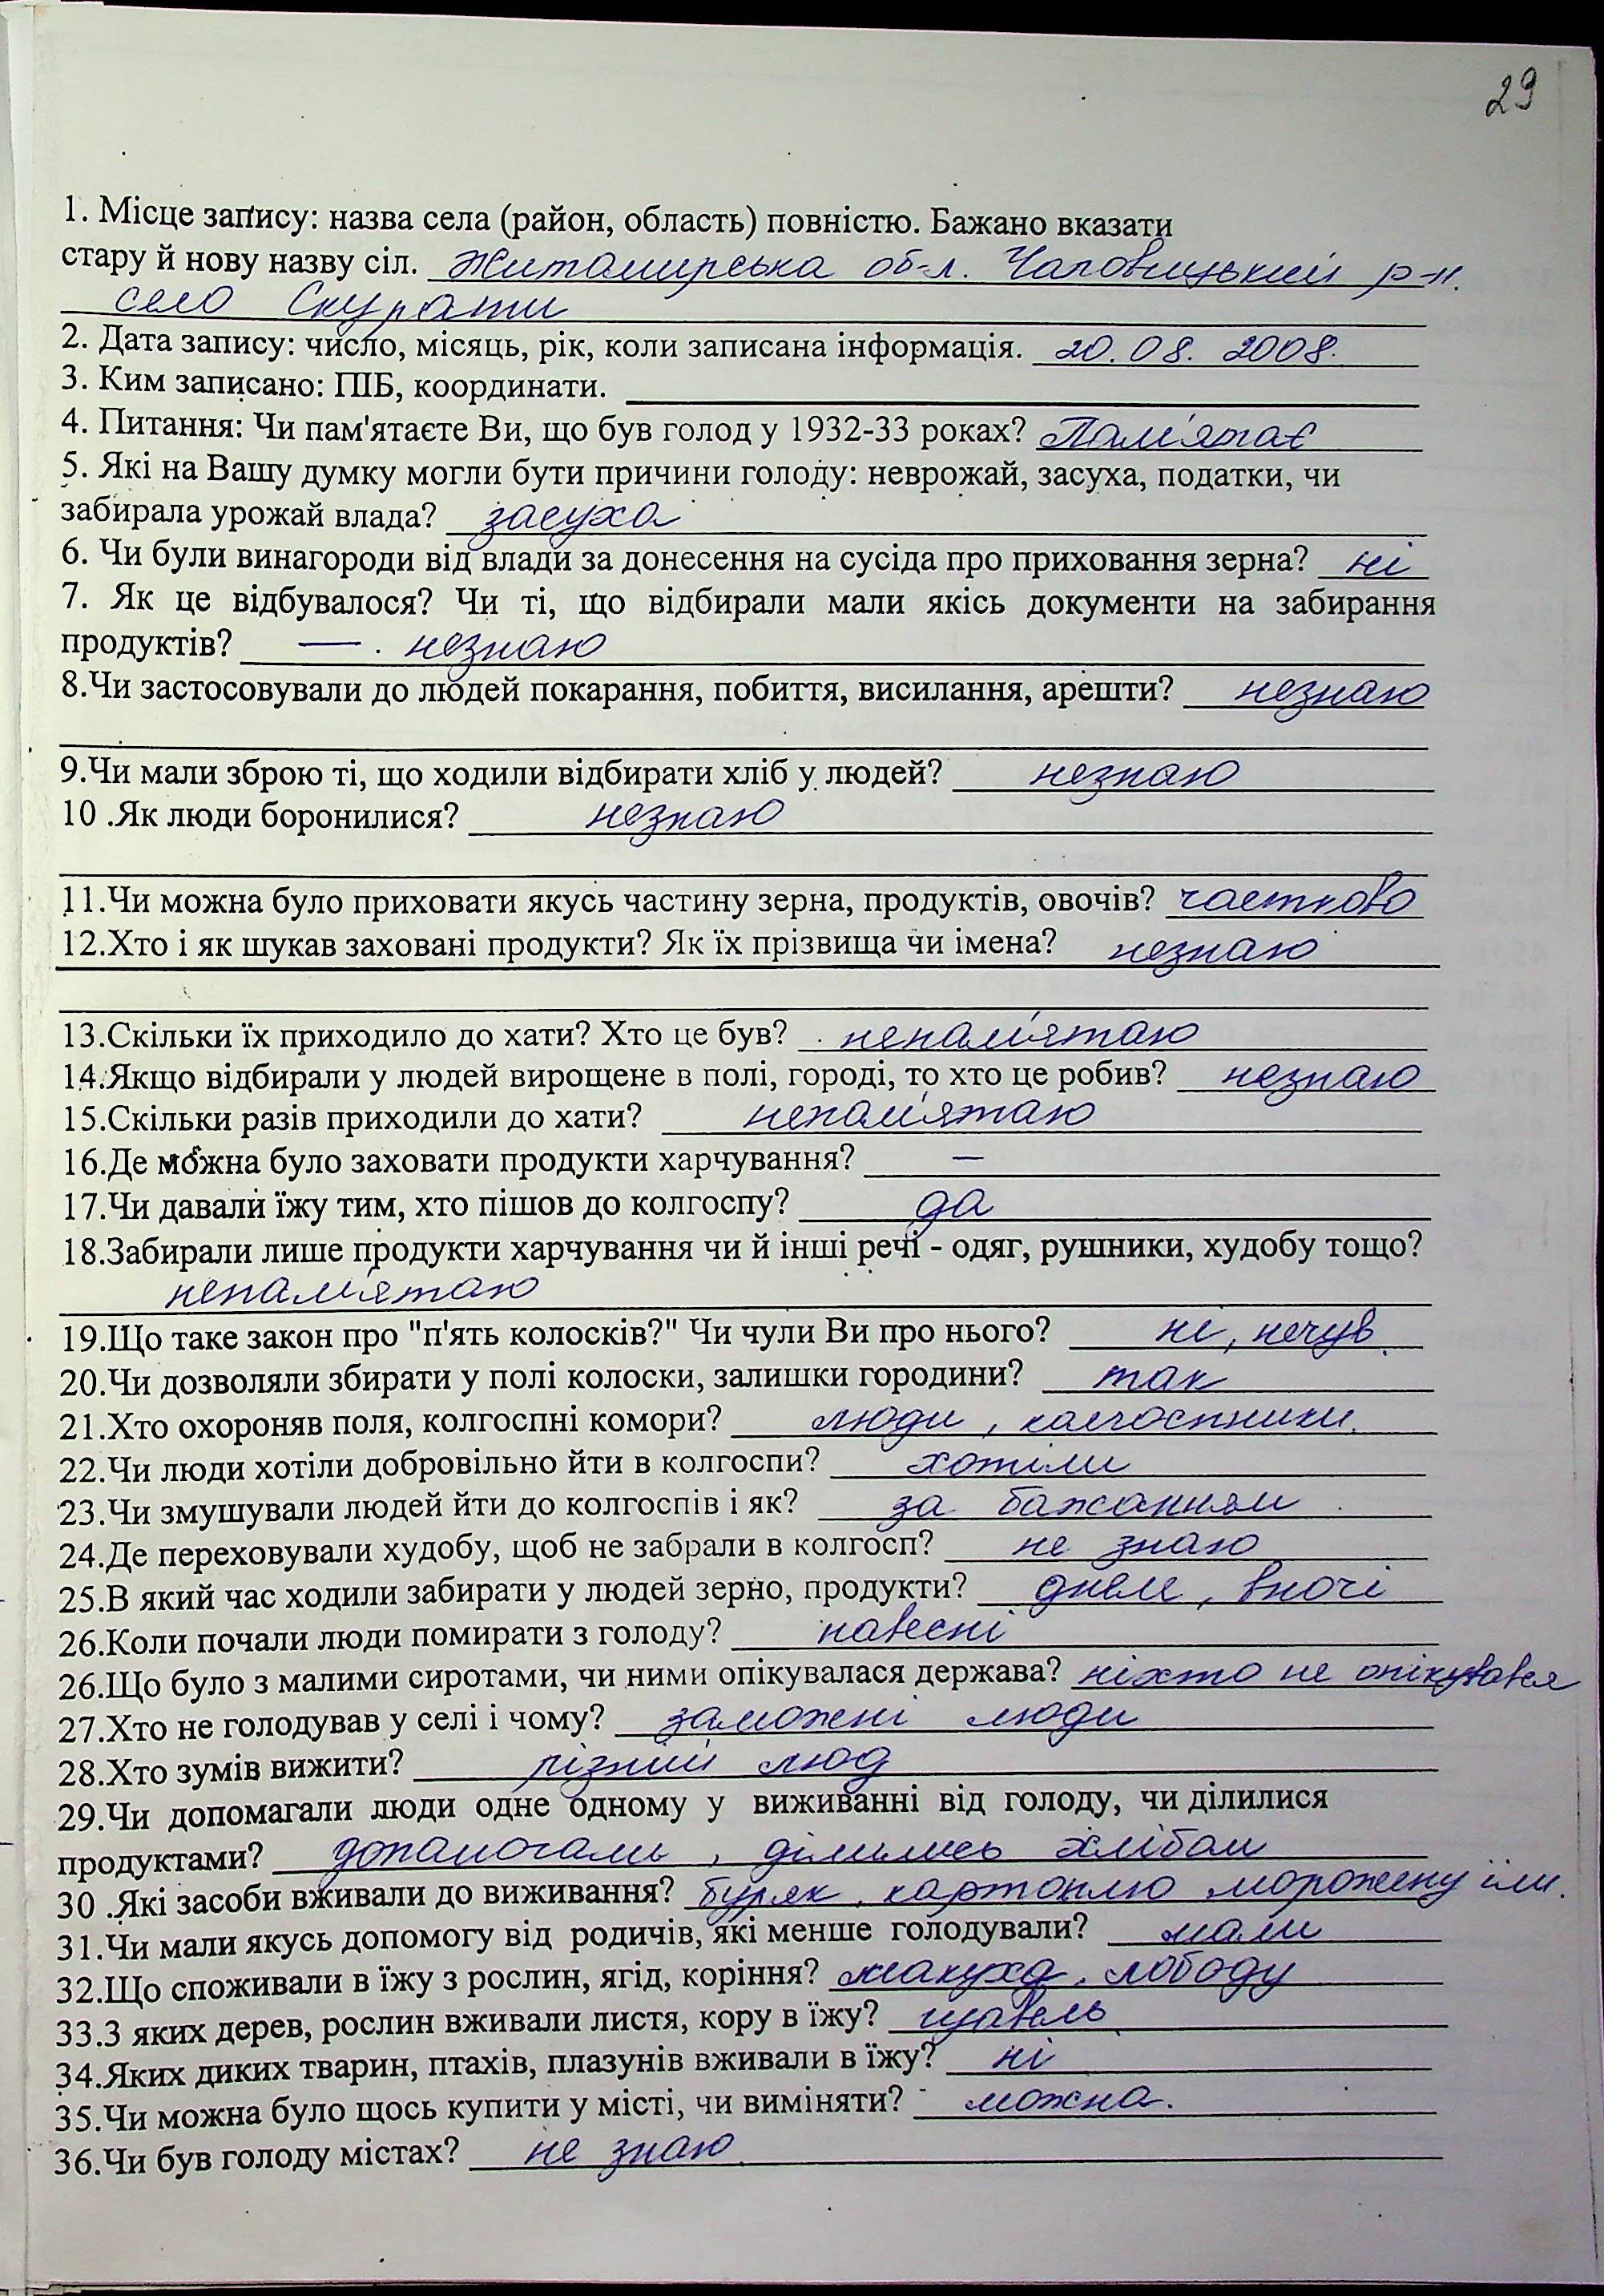 29
1. Місце запису: назва села (район, область) повністю. Бажано вказати
стару й нову назву сіл. Житомирська об-л. Чаповицький р-н.
село Скурати
2. Дата запису: число, місяць, рік, коли записана інформація. 20.08.2008.
3. Ким записано: ПІБ, координати.
4. Питання: Чи пам'ятаєте Ви, що був голод у 1932-33 роках? Пам'ятає
5. Які на Вашу думку могли бути причини голоду: неврожай, засуха, податки, чи
забирала урожай влада? засуха
6. Чи були винагороди від влади за донесення на сусіда про приховання зерна? ні
7. Як це відбувалося? Чи ті, що відбирали мали якісь документи на забирання
продуктів? — . незнаю
8.Чи застосовували до людей покарання, побиття, висилання, арешти? незнаю
9.Чи мали зброю ті, що ходили відбирати хліб у людей? незнаю
10 .Як люди боронилися? незнаю
11.Чи можна було приховати якусь частину зерна, продуктів, овочів? частково
12.Хто і як шукав заховані продукти? Як їх прізвища чи імена? незнаю
13.Скільки їх приходило до хати? Хто це був? непам'ятаю
14.Якщо відбирали у людей вирощене в полі, городі, то хто це робив? незнаю
15.Скільки разів приходили до хати? непам'ятаю
16.Де можна було заховати продукти харчування? —
17.Чи давали їжу тим, хто пішов до колгоспу? да
18.Забирали лише продукти харчування чи й інші речі - одяг, рушники, худобу тощо?
непам'ятаю
19.Що таке закон про "п'ять колосків?" Чи чули Ви про нього? ні, нечув.
20.Чи дозволяли збирати у полі колоски, залишки городини? так
21.Хто охороняв поля, колгоспні комори? люди, колгоспники.
22.Чи люди хотіли добровільно йти в колгоспи? хотіли
23.Чи змушували людей йти до колгоспів і як? за бажанням
24.Де переховували худобу, щоб не забрали в колгосп? не знаю
25.В який час ходили забирати у людей зерно, продукти? днем, вночі
26.Коли почали люди помирати з голоду? навесні
26.Що було з малими сиротами, чи ними опікувалася держава? ніхто не опікувався
27.Хто не голодував у селі і чому? заможні люди
28.Хто зумів вижити? різний люд
29.Чи допомагали люди одне одному у виживанні від голоду, чи ділилися
продуктами? допомогали, ділились хлібом
30 .Які засоби вживали до виживання? буряк, картоплю морожену їли.
31.Чи мали якусь допомогу від родичів, які менше голодували? мали
32.Що споживали в їжу з рослин, ягід, коріння? макуха, лободу
33.З яких дерев, рослин вживали листя, кору в їжу? щавель
34.Яких диких тварин, птахів, плазунів вживали в їжу? ні
35.Чи можна було щось купити у місті, чи виміняти? можна.
36.Чи був голоду містах? не знаю.